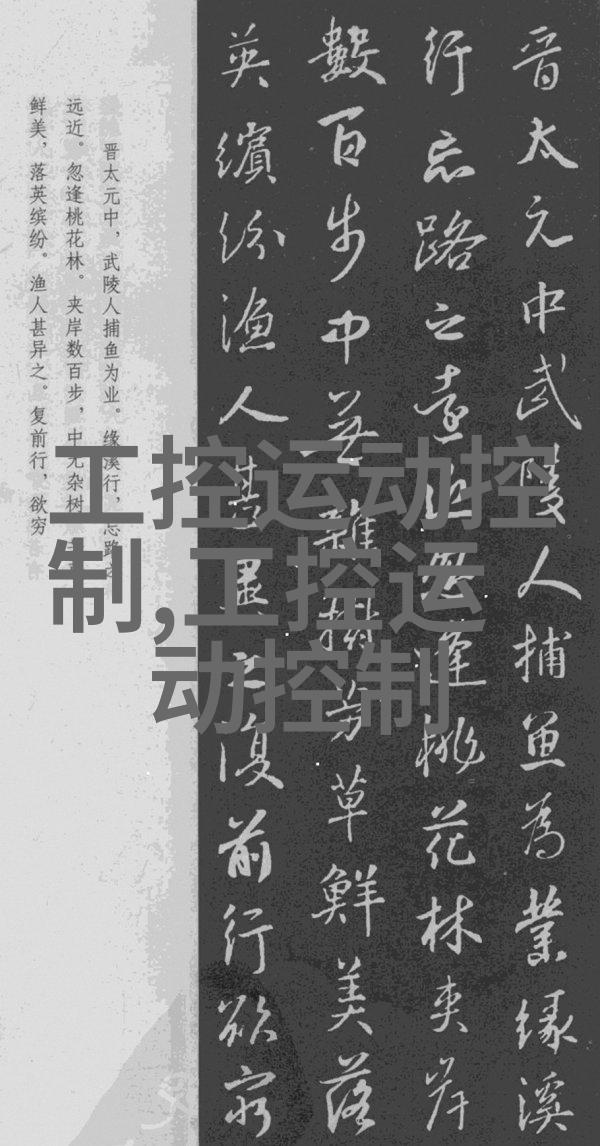 晋太元中武陵人捕魚為業緣溪
行忘路之遠近忽逢桃花林夾岸
數百步中無雜樹芳草鮮美落
英繽紛漁人甚異之復前行欲窮
晋太元中，武陵人捕鱼为业。缘溪行，忘路之
远近。忽逢桃花林。夹岸数百步，中无杂树
鲜美，落英缤纷。渔人甚异之。复前行，欲穷
工控运动控
制,工控运
动控制